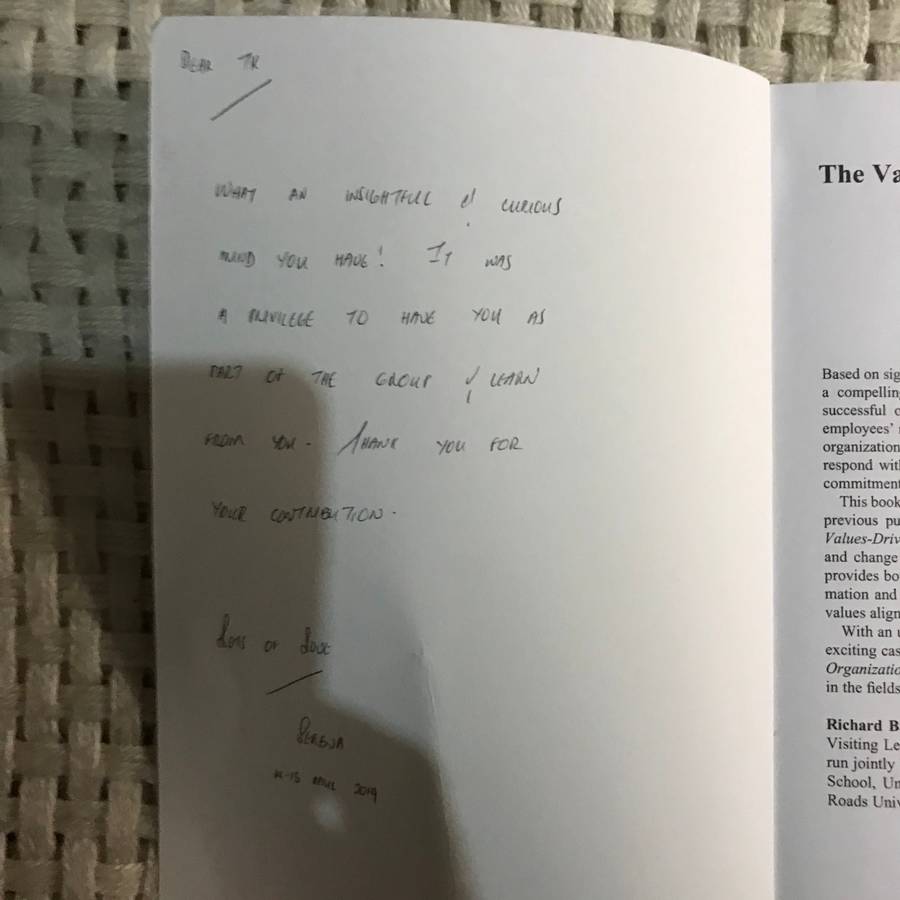 DEAR TK
WHAT AN INSIGHTFULL & CURIOUS
MIND YOU HAVE! IT WAS
A PRIVILEGE TO HAVE YOU AS
PART OF THE GROUP & LEARN
FROM YOU. THANK YOU FOR
YOUR CONTRIBUTION.
LOTS OF LOVE
2019
The Va
Based on sig
a compelling
successful o
employees'
organization
respond with
commitment
This book
previous pu
Values-Driv
and change
provides bo
mation and
values align
With an u
exciting cas
Organizatio
in the fields
Richard B
Visiting Le
run jointly
School, Un
Roads Univ